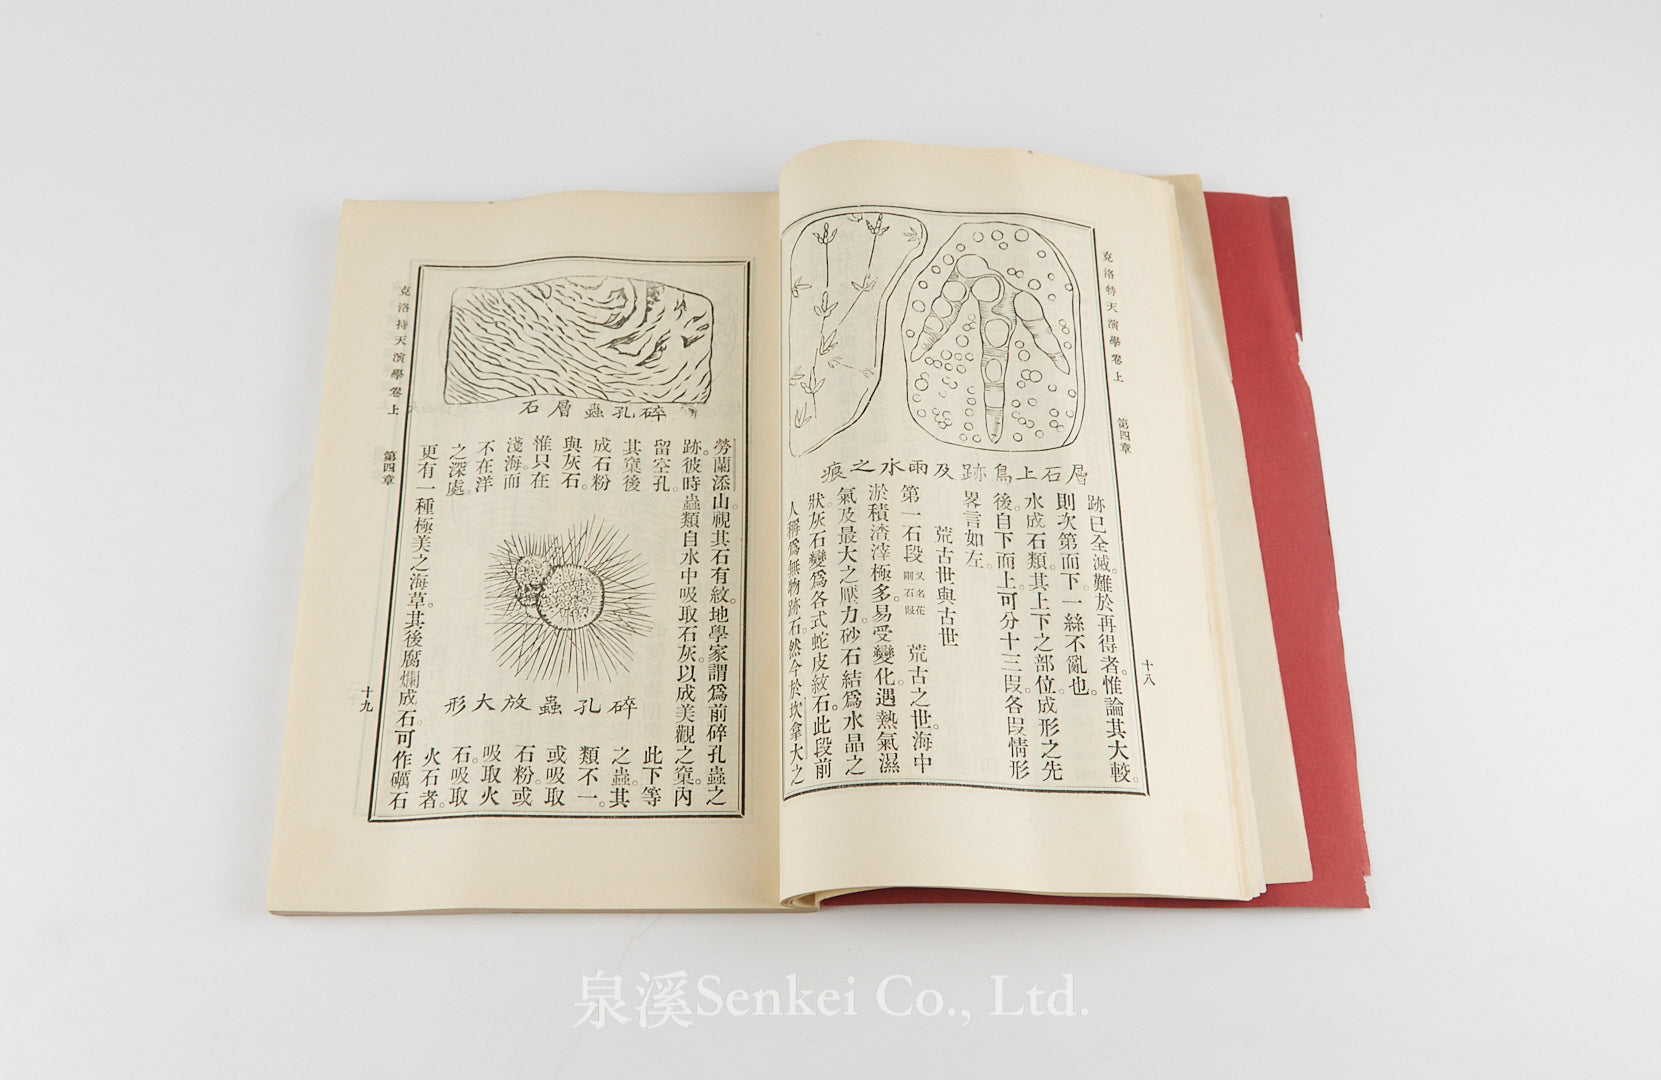 克洛特天演學卷上
第四章
十八
層石上鳥跡及雨水之痕
跡已全滅。難於再得者。惟論其大較。
則次第而下。一絲不亂也。
水成石類。其上下之部位。成形之先
後。自下而上。可分十三段。各段情形
畧言如左。
荒古世與古世
第一石段 又名花剛石段 荒古之世。海中
淤積渣滓極多。易受變化。遇熱氣濕
氣及最大之壓力。砂石結爲水晶之
狀。灰石變爲各式蛇皮紋石。此段前
人稱爲無物跡石。然今於坎拿大之
克洛特天演學卷上
第四章
十九
碎孔蟲層石
勞蘭添山。視其石有紋。地學家謂爲前碎孔蟲之
跡。彼時蟲類自水中吸取石灰。以成美觀之窠。內
留空孔。
其窠後
成石粉
與灰石。
惟只在
淺海。而
不在洋
之深處。
碎孔蟲放大形
此下等
之蟲。其
類不一。
或吸取
石粉。或
吸取火
石。吸取
火石者。
更有一種極美之海草。其後腐爛成石。可作礪石
泉溪Senkei Co., Ltd.